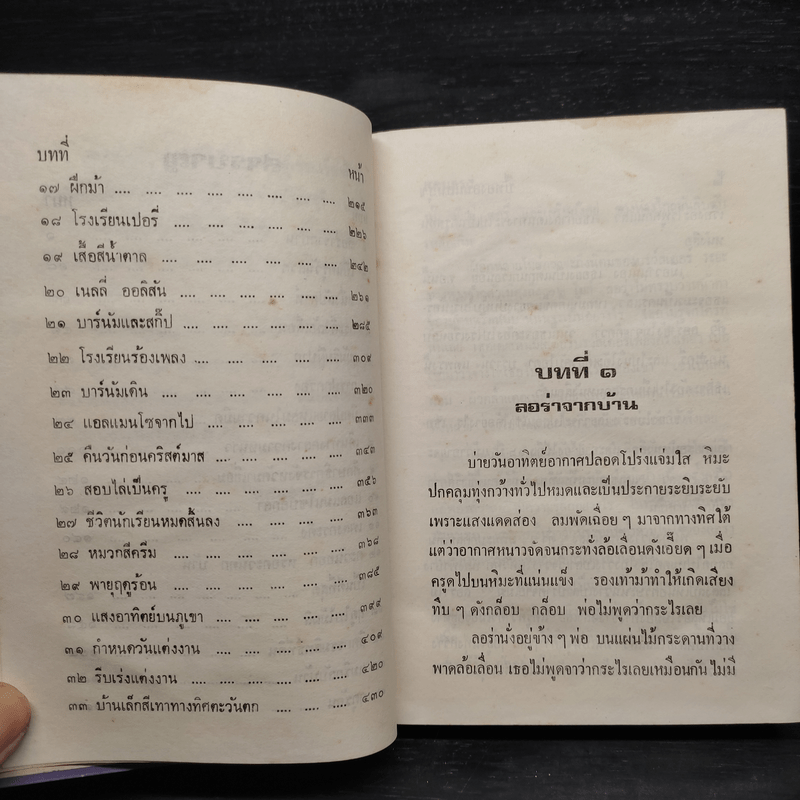 บทที่ หน้า
๑๗ ฝึกม้า .... .... .... .... .... .... .... ๒๑๕
๑๘ โรงเรียนเปอรี่ .... .... .... .... .... ๒๒๖
๑๙ เสื้อสีน้ำตาล .... .... .... .... .... .... ๒๔๒
๒๐ เนลลี่ ออลิสัน .... .... .... .... .... ๒๖๑
๒๑ บาร์นัมและสกิ๊ป .... .... .... .... .... ๒๘๕
๒๒ โรงเรียนร้องเพลง .... .... .... .... .... ๓๐๙
๒๓ บาร์นัมเดิน .... .... .... .... .... ๓๒๐
๒๔ แอลแมนโซจากไป .... .... .... .... ๓๓๓
๒๕ คืนวันก่อนคริสต์มาส .... .... .... .... ๓๔๓
๒๖ สอบไล่เป็นครู .... .... .... .... .... ๓๕๖
๒๗ ชีวิตนักเรียนหมดสิ้นลง .... .... .... .... ๓๖๓
๒๘ หมวกสีครีม .... .... .... .... .... ๓๖๘
๒๙ พายุฤดูร้อน .... .... .... .... .... ๓๘๕
๓๐ แสงอาทิตย์บนภูเขา .... .... .... .... ๓๙๙
๓๑ กำหนดวันแต่งงาน .... .... .... .... ๔๐๙
๓๒ รีบเร่งแต่งงาน .... .... .... .... .... ๔๒๐
๓๓ บ้านเล็กสีเทาทางทิศตะวันตก .... .... .... ๔๓๐
บทที่ ๑
ลอร่าจากบ้าน
บ่ายวันอาทิตย์อากาศปลอดโปร่งแจ่มใส หิมะ
ปกคลุมทุ่งกว้างทั่วไปหมดและเป็นประกายระยิบระยับ
เพราะแสงแดดส่อง ลมพัดเฉื่อย ๆ มาจากทางทิศใต้
แต่ว่าอากาศหนาวจัดจนกระทั่งล้อเลื่อนดังเอี๊ยด ๆ เมื่อ
ครูดไปบนหิมะที่แน่นแข็ง รองเท้าม้าทำให้เกิดเสียง
ทึบ ๆ ดังกล็อบ กล็อบ พ่อไม่พูดว่ากระไรเลย
ลอร่านั่งอยู่ข้าง ๆ พ่อ บนแผ่นไม้กระดานที่วาง
พาดล้อเลื่อน เธอไม่พูดจาว่ากระไรเลยเหมือนกัน ไม่มี